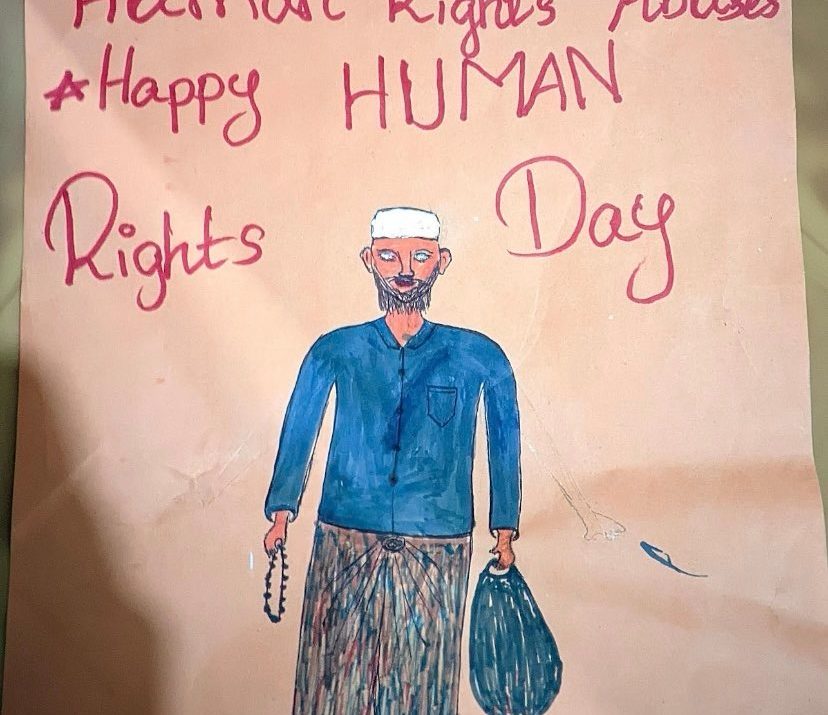 Human Rights Abuses
*Happy HUMAN
Rights Day